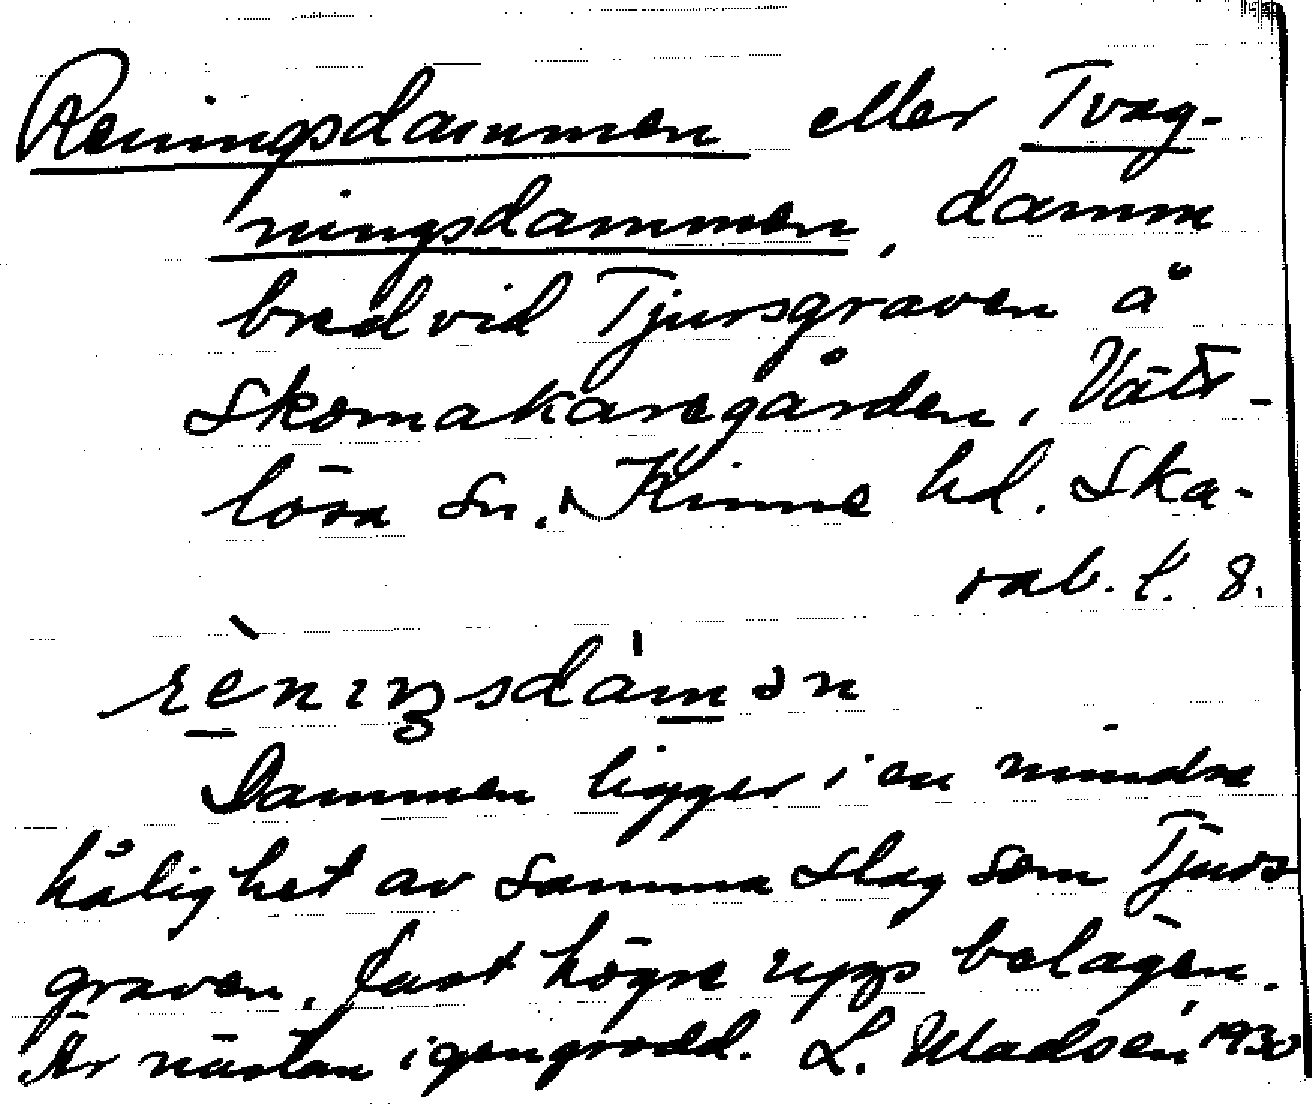 Reningsdammen eller Tvag-
ningsdammen, damm
bredvid Tjursgraven å
Skomakaregården, Vätt-
lösa sn. Kinne hd. Ska-
rab. l. 8.
rèniŋsdámən
Dammen ligger i en mindre
hålighet av samma slag som Tjurs
graven, fast högre upp belägen.
Är nästan igengrodd. L. Wadsén 1930